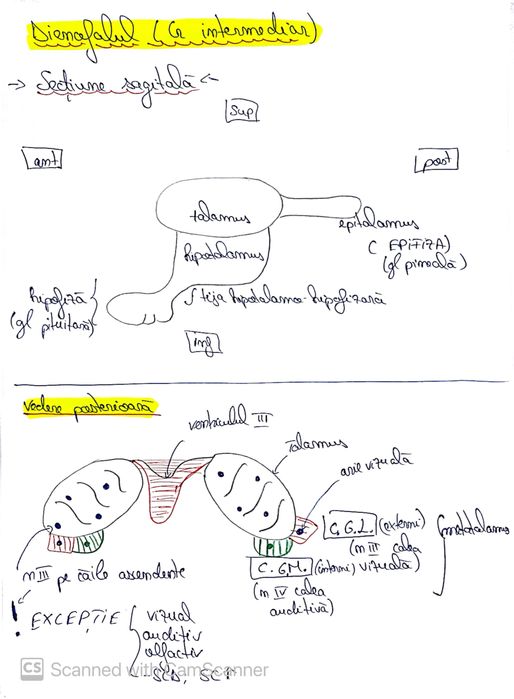 Diencefalul (Cr intermediar)
→ Secțiune sagitală ←
sup
ant
post
talamus
epitalamus
( EPIFIZA)
(gl pineală)
hipotalamus
hipofiză
(gl pituitară)
tija hipotalamo-hipofizară
inf
Vedere posterioară
ventriculul III
talamus
arie vizuală
C.G.L. (externi)
(n III calea
vizuală)
metatalamus
C.G.M. (interni)
(n IV calea
auditivă)
n III pe căile ascendente
! EXCEPȚIE
vizual
auditiv
olfactiv
CS Scanned with CamScanner